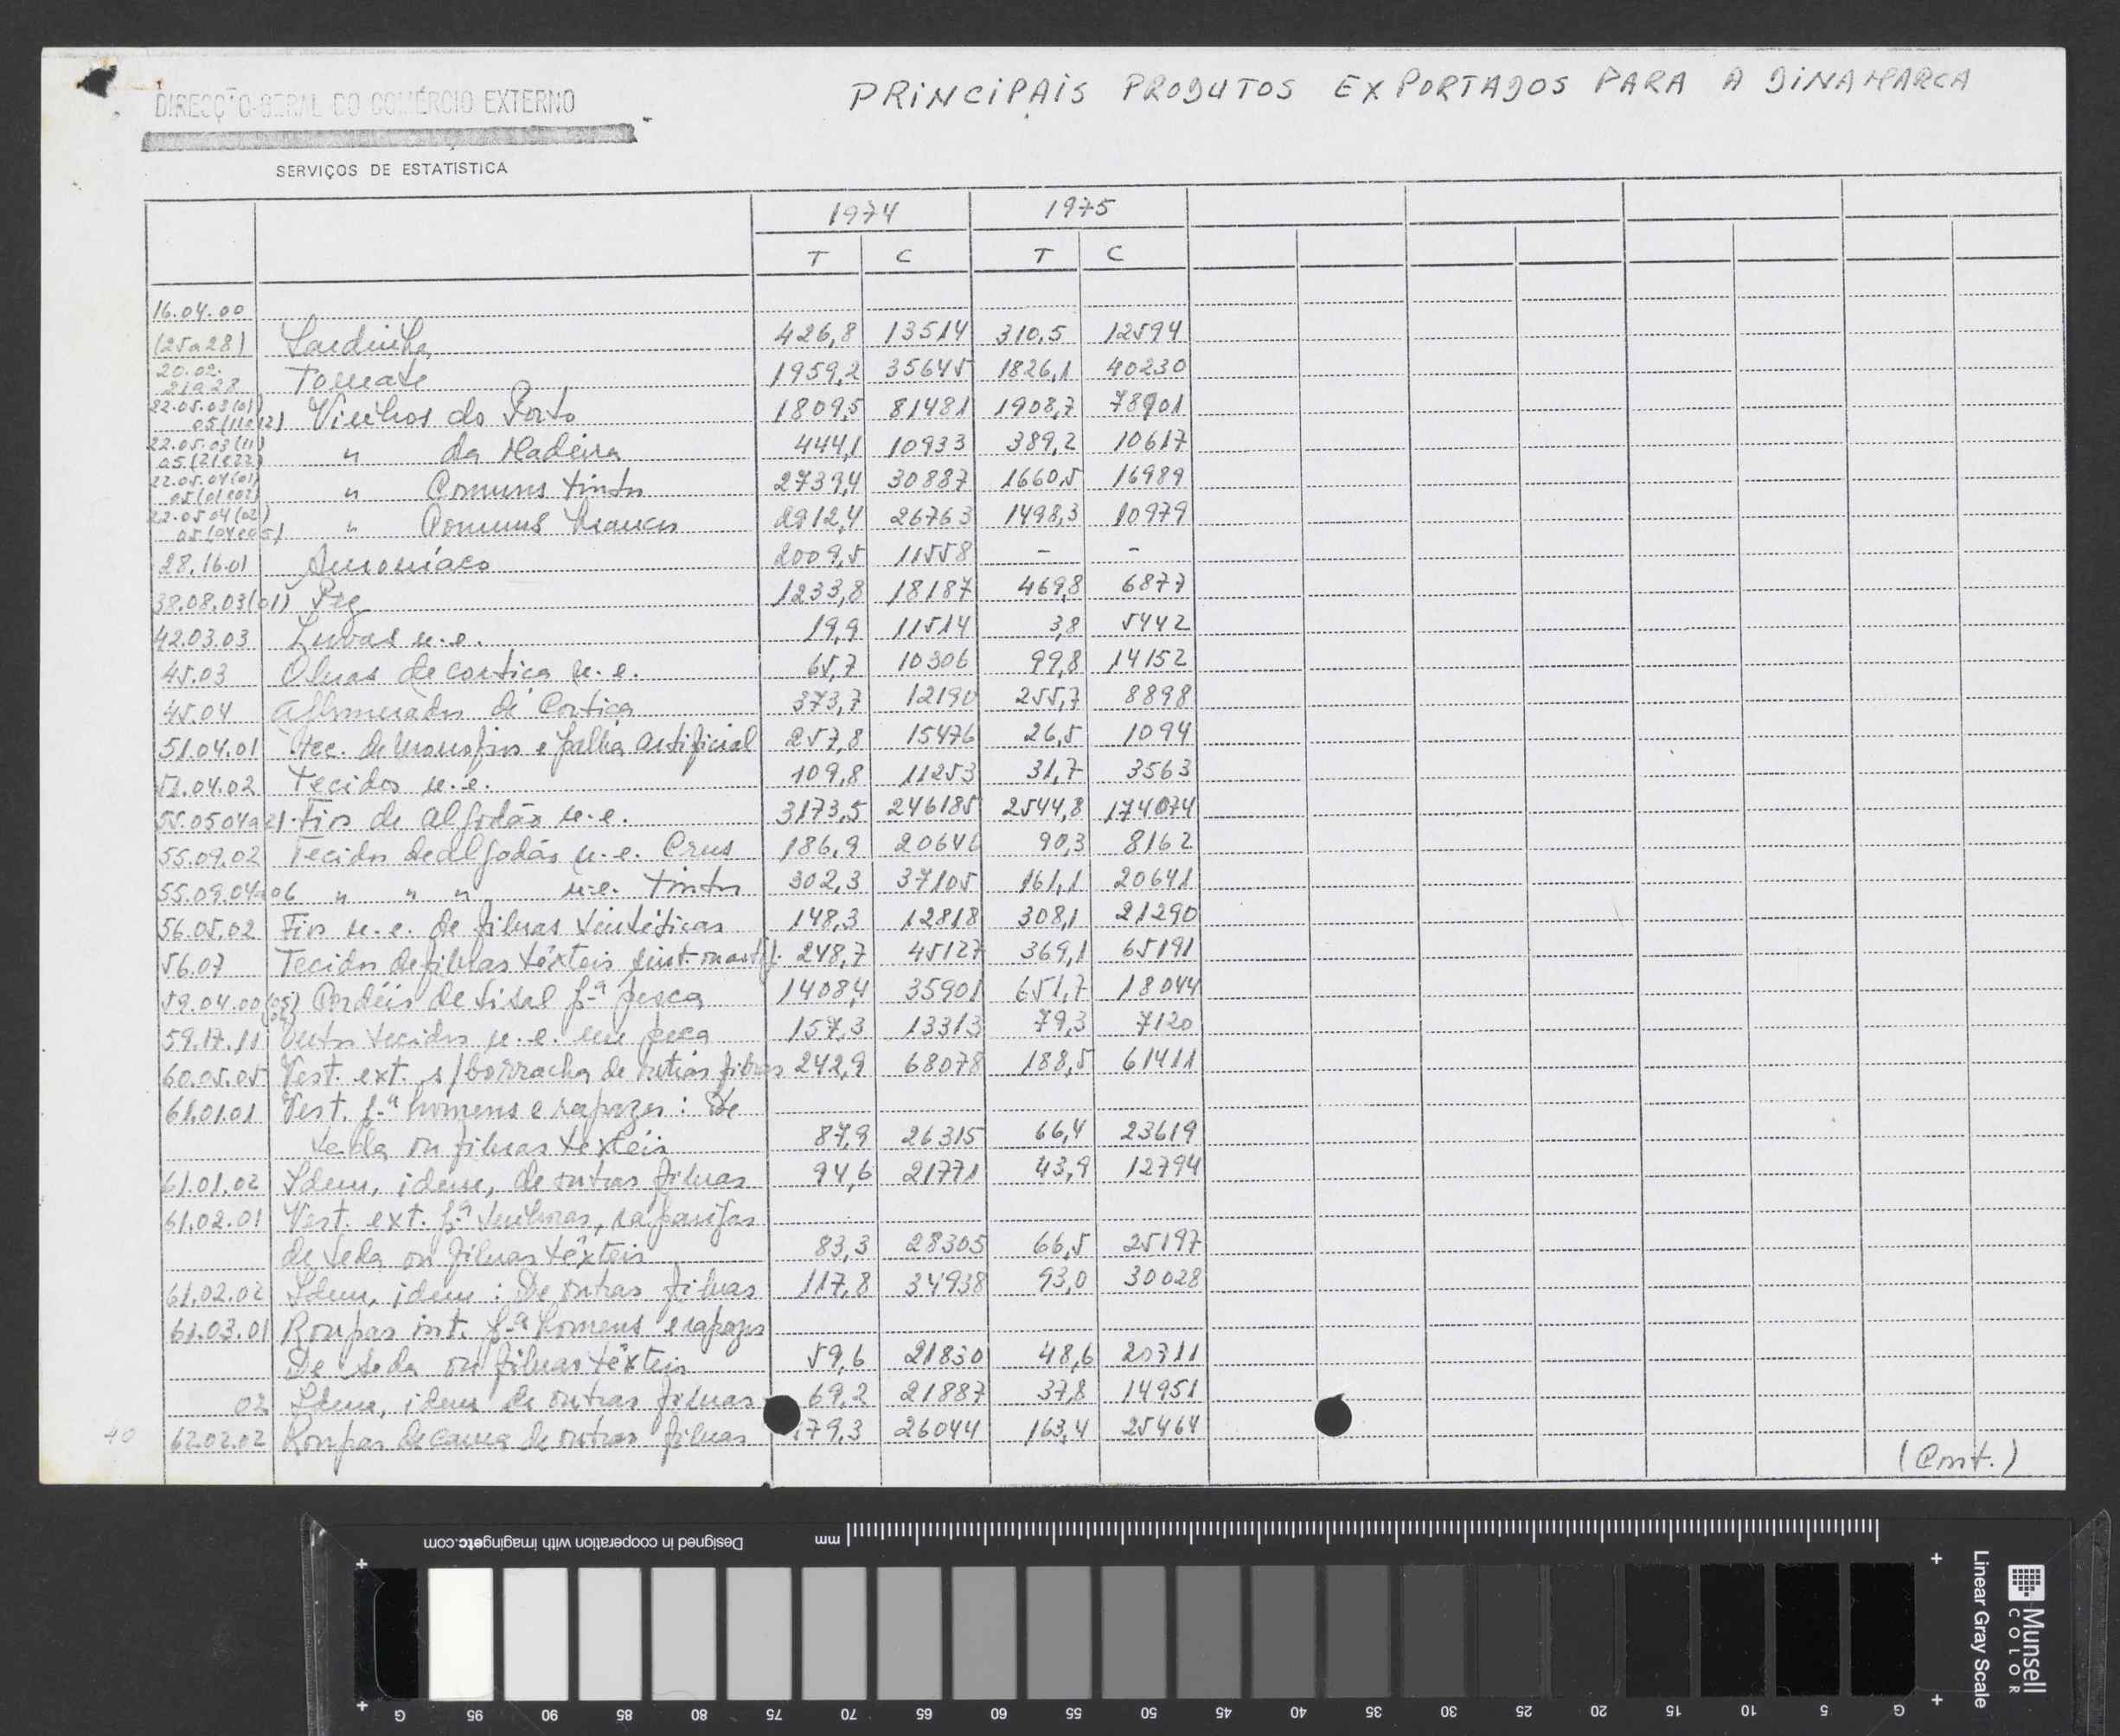 DIRECÇÃO-GERAL DO COMÉRCIO EXTERNO
PRINCIPAIS PRODUTOS EXPORTADOS PARA A DINAMARCA
SERVIÇOS DE ESTATISTICA
1974 1975
T C T C
16.04.00
(25a28) Sardinha 426,8 13514 310,5 12594
20.02.
21a28 Tomate 1959,2 35645 1826,1 40230
22.05.03(01)
05(11e12) Vinhos do Porto 1809,5 81481 1908,7 78901
22.05.03(11)
05(21e22) " da Madeira 444,1 10933 389,2 10617
22.05.04(01)
05(01e02) " Comuns tintos 2739,4 30887 1660,5 16989
22.05.04(02)
05(04e05) " Comuns brancos 2912,4 26763 1498,3 10979
28.16.01 Amoníaco 2009,5 11558 - -
38.08.03(01) Pez 1233,8 18187 469,8 6877
42.03.03 Luvas n.e. 19,9 11514 3,8 5442
45.03 Obras de cortiça n.e. 65,7 10306 99,8 14152
45.04 Aglomerados de Cortiça 373,7 12190 255,7 8898
51.04.01 Tec. de monofios e palha artificial 257,8 15476 26,5 1094
51.04.02 Tecidos n.e. 109,8 11253 31,7 3563
55.05.04a21 Fios de algodão n.e. 3173,5 246185 2544,8 174074
55.09.02 Tecidos de algodão n.e. Crus 186,9 20646 90,3 8162
55.09.04a06 " " " n.e. tintos 302,3 37105 161,1 20641
56.05.02 Fios n.e. de fibras sintéticas 148,3 12818 308,1 21290
56.07 Tecidos de fibras têxteis sint. ou artif. 248,7 45127 369,1 65191
59.04.00(05) Cordéis de sisal p.ª pesca 1408,4 35901 651,7 18044
59.17.11 Outros tecidos n.e. em peça 157,3 13313 79,3 7120
60.05.05 Vest. ext. s/borracha de outras fibras 242,9 68078 188,5 61411
61.01.01 Vest. p.ª homens e rapazes: De
seda ou fibras têxteis 87,9 26315 66,4 23619
61.01.02 Idem, idem, de outras fibras 94,6 21771 43,9 12794
61.02.01 Vest. ext. p.ª senhoras, raparigas
de seda ou fibras têxteis 83,3 28305 66,5 25197
61.02.02 Idem, idem: De outras fibras 117,8 34938 93,0 30028
61.03.01 Roupas int. p.ª homens e rapazes
De seda ou fibras têxteis 59,6 21830 48,6 20311
02 Idem, idem de outras fibras 69,2 21887 37,8 14951
40 62.02.02 Roupas de cama de outras fibras 179,3 26044 163,4 25464
(Cont.)
Designed in cooperation with imagingetc.com
mm
G 95 90 85 80 75 70 65 60 55 50 45 40 35 30 25 20 15 10 5 G
Linear Gray Scale
Munsell
COLOR